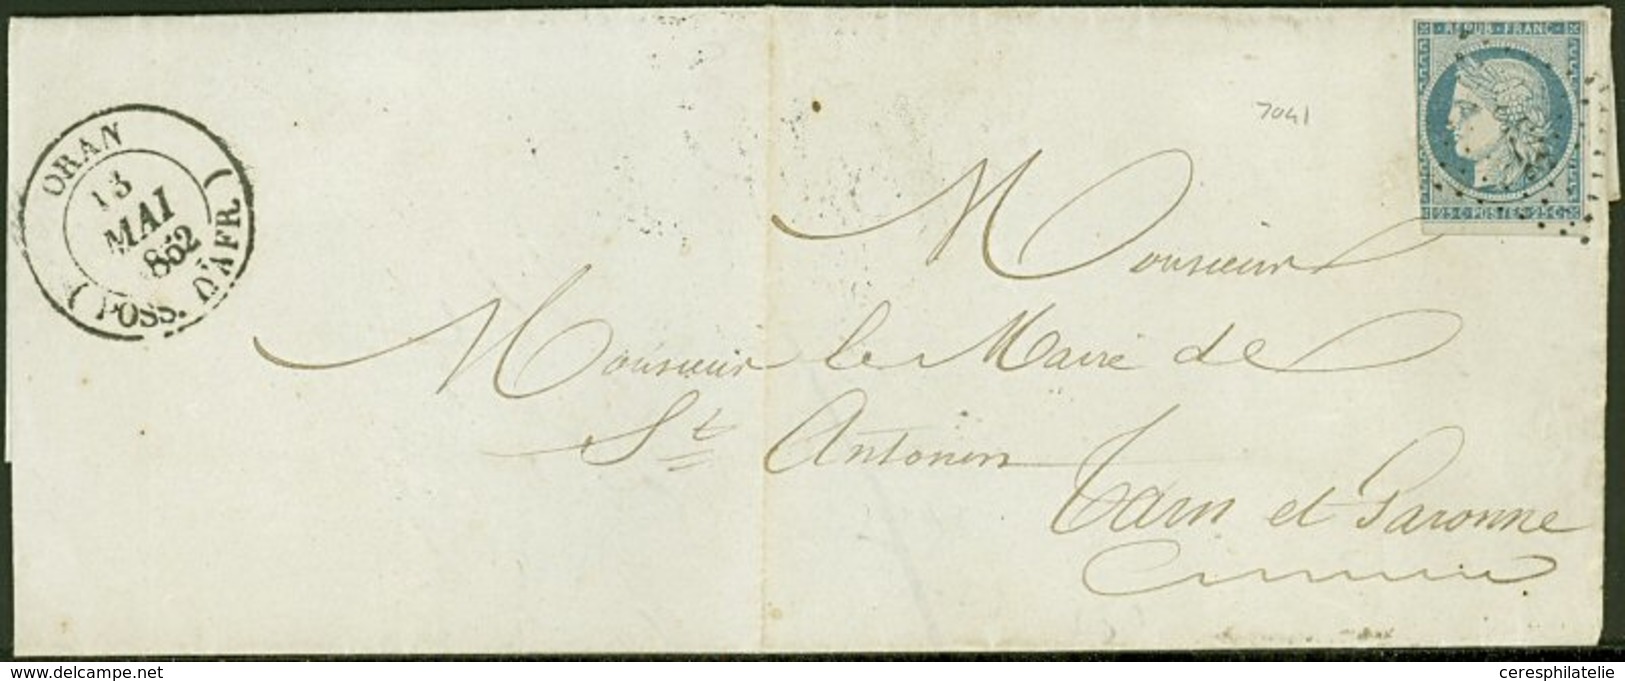 REPUB·FRANC·
25·C·POSTES·25·C
ORAN
13
MAI
852
( POSS. D'AFR )
7041
Monsieur
Monsieur le Maire de
St Antonin
Tarn et Garonne
delcampe.net
ceresphilatelie